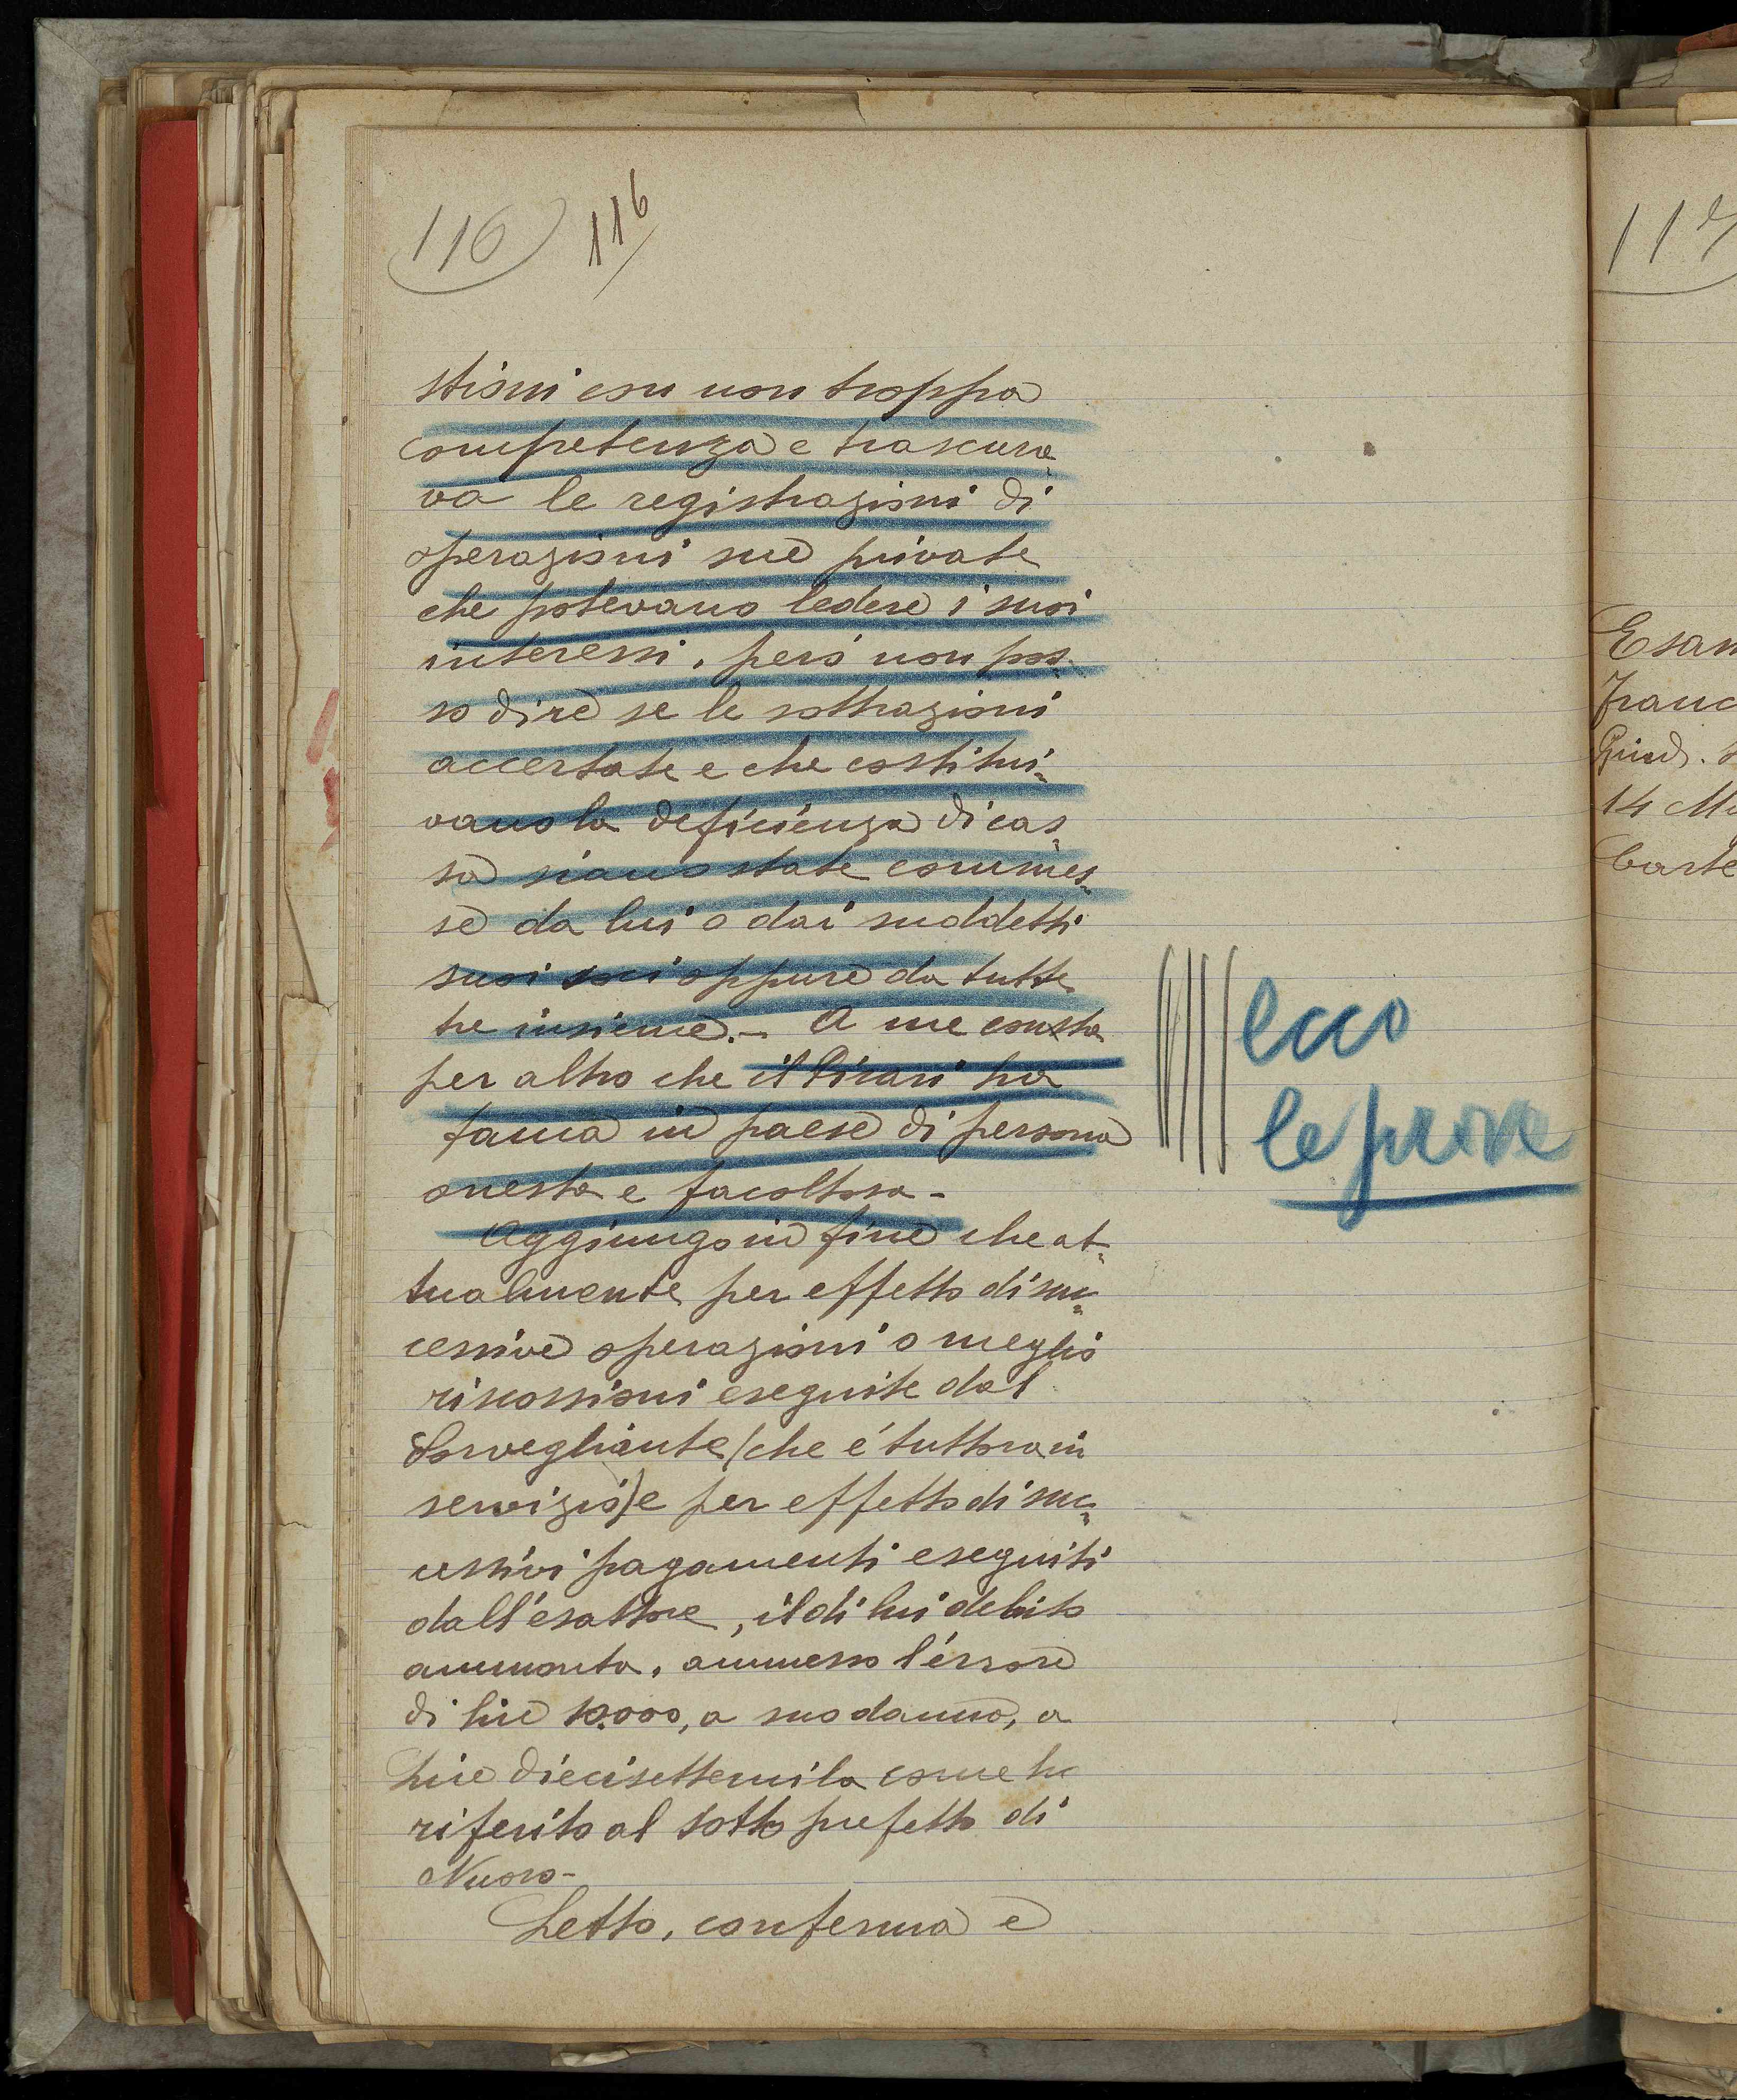 116
116
stioni con non troppa
competenza e trascura„
va le registrazioni di
operazioni sue private
che potevano ledere i suoi
interessi, però non pos„
so dire se le sottrazioni
accertate e che costitui„
vano la deficienza di cas„
sa siano state commes„
se da lui o dai suddetti
suoi soci oppure da tutte
tre insieme. - A me consta
per altro che il Pirari ha
fama in paese di persona
onesta e facoltosa -
Aggiungo in fine che at„
tualmente per effetto di suc„
cessive operazioni o meglio
riscossioni eseguite dal
Sorvegliante (che é tuttora in
servizio) e per effetto di suc„
cessivi pagamenti eseguiti
dall'esattore, il di lui debito
ammonta, ammesso l'errore
di lire 10.000, a suo danno, a
Lire diecisettemila come ho
riferito al sotto prefetto di
Nuoro -
Letto, conferma e
ecco
le prove
117
Esam
Franc
Giud.
14 Ma
Carte